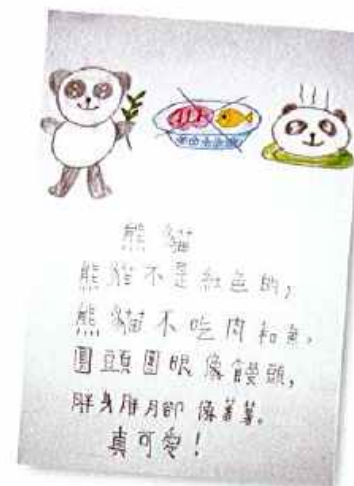 熊貓
熊貓不是紅色的，
熊貓不吃肉和魚，
圓頭圓眼像饅頭，
胖身胖腳像番薯。
真可愛！